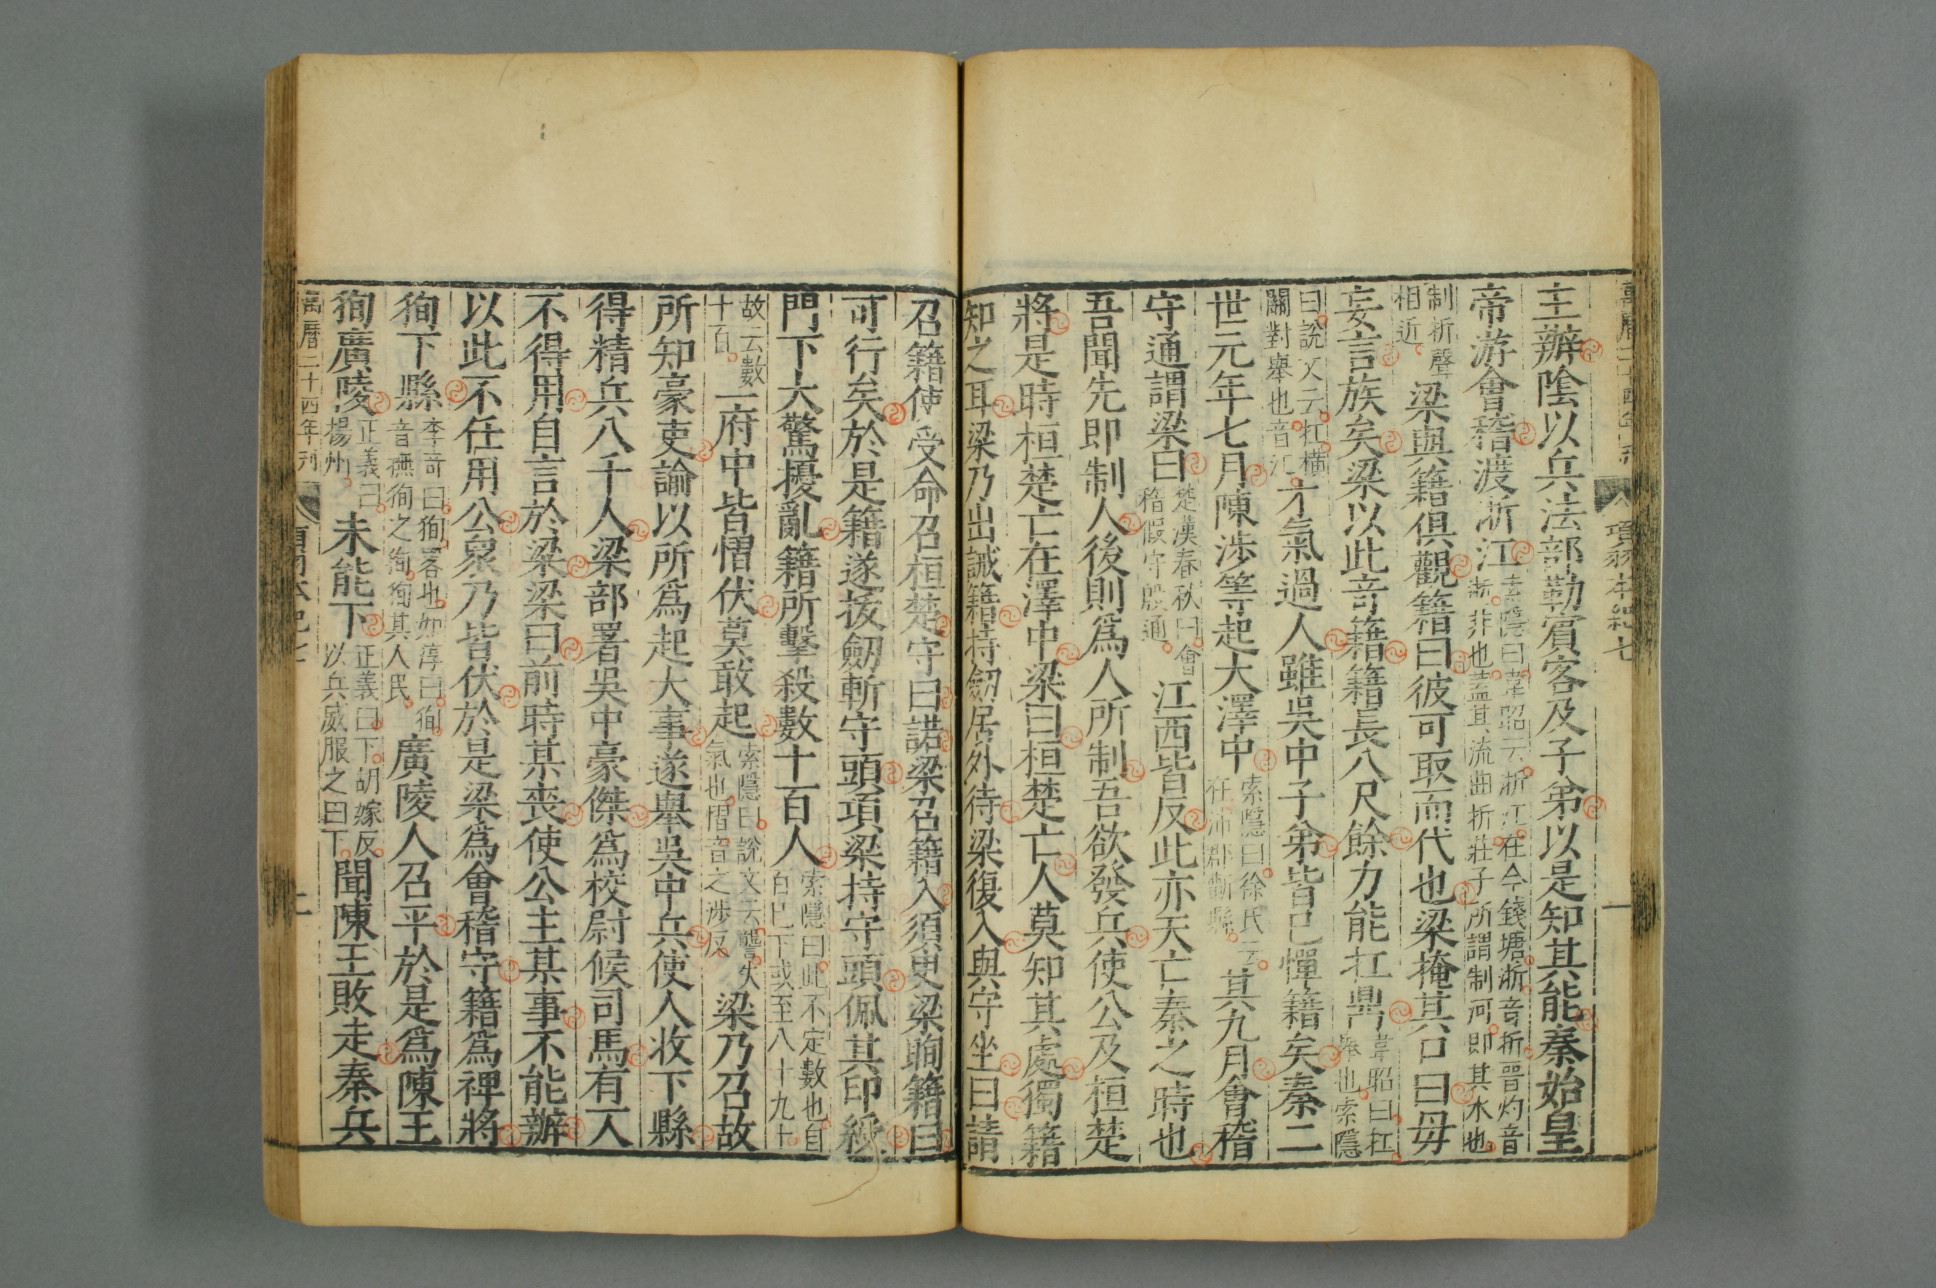 主辦陰以兵法部勒賓客及子弟以是知其能秦始皇
帝游會稽渡浙江索隱曰韋昭云浙江在今錢塘浙音折晉灼音
浙非也蓋其流曲折莊子所謂制河即其水也
制折聲
相近梁與籍俱觀籍曰彼可取而代也梁掩其口曰毋
妄言族矣梁以此奇籍籍長八尺餘力能扛鼎韋昭曰扛
舉也索隱
曰說文云扛橫
關對舉也音江才氣過人雖吳中子弟皆已憚籍矣秦二
世元年七月陳涉等起大澤中索隱曰徐氏云
在沛郡蘄縣其九月會稽
守通謂梁曰楚漢春秋曰會
稽假守殷通江西皆反此亦天亡秦之時也
吾聞先即制人後則為人所制吾欲發兵使公及桓楚
將是時桓楚亡在澤中梁曰桓楚亡人莫知其處獨籍
知之耳梁乃出誡籍持劒居外待梁復入與守坐曰請
召籍使受命召桓楚守曰諾梁召籍入須臾梁眴籍曰
可行矣於是籍遂拔劒斬守頭項梁持守頭佩其印綬
門下大驚擾亂籍所擊殺數十百人索隱曰此不定數也自
百已下或至八十九十
故云數
十百一府中皆慴伏莫敢起索隱曰說文云讋失
氣也慴音之涉反梁乃召故
所知豪吏諭以所為起大事遂舉吳中兵使人收下縣
得精兵八千人梁部署吳中豪傑為校尉候司馬有一人
不得用自言於梁梁曰前時某喪使公主某事不能辦
以此不任用公衆乃皆伏於是梁為會稽守籍為裨將
徇下縣李奇曰徇畧也如淳曰徇
音撫徇之徇徇其人民廣陵人召平於是為陳王
徇廣陵正義曰
揚州未能下正義曰下胡嫁反
以兵威服之曰下聞陳王敗走秦兵
萬曆二十四年刊
項羽本紀七